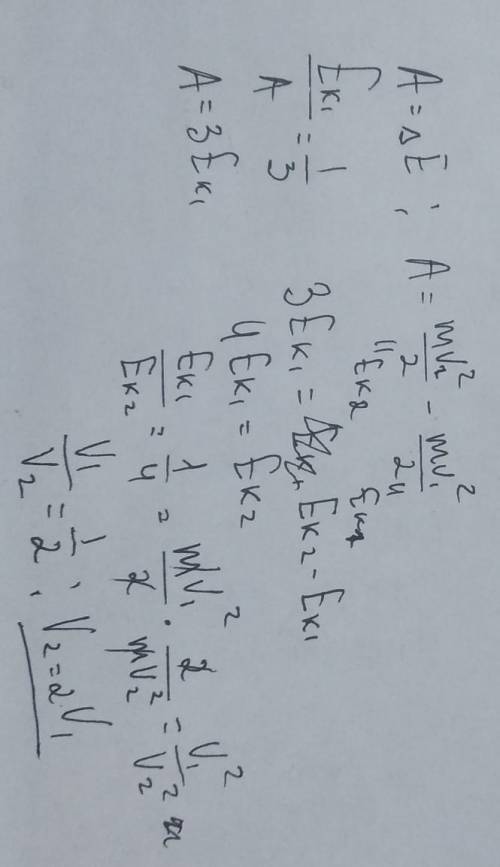 A = ΔE ; A = mV₂²/2 - mV₁²/2
Eк₂ Eк₁
Eк₁/A = 1/3
A = 3Eк₁
3Eк₁ = Eк₂ - Eк₁
4Eк₁ = Eк₂
Eк₁/Eк₂ = 1/4 = mV₁²/2 · 2/mV₂² = V₁²/V₂²
V₁/V₂ = 1/2 ; V₂ = 2V₁